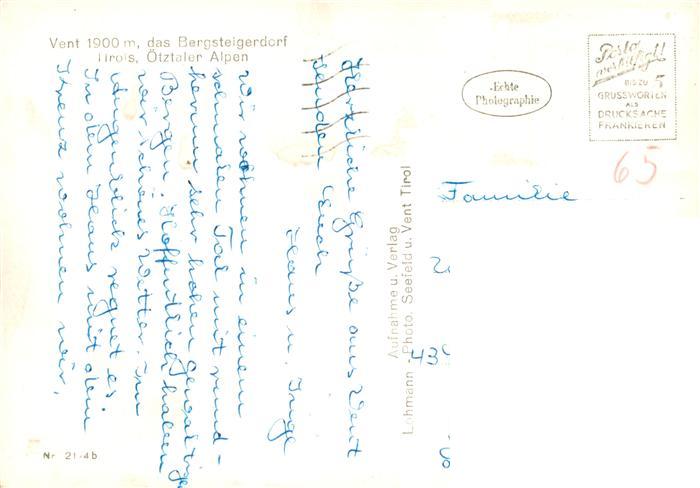 Vent 1900 m, das Bergsteigerdorf
Tirols, Ötztaler Alpen
Herzliche Grüße aus Vent
senden Euch
Hans u. Inge
Wir wohnen in einem
schmalen Tal mit rund-
herum sehr hohen gewaltigen
Bergen. Hoffentlich haben
wir schönes Wetter. Im
Augenblick regnet es
In dem Haus mit dem
Kreuz wohnen wir.
Nr. 21-4b
Aufnahme u. Verlag
Lohmann - Photo. Seefeld u. Vent Tirol
Echte
Photographie
Porto
verbilligt!
BIS ZU 5
GRUSSWORTEN
ALS
DRUCKSACHE
FRANKIEREN
65
Familie
43